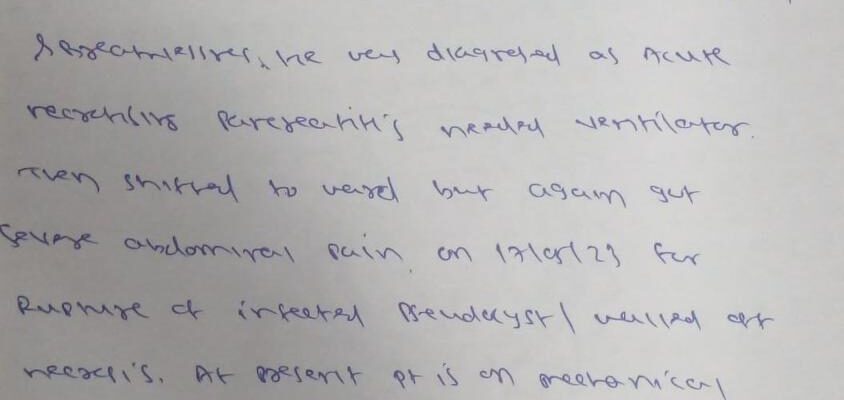 he was diagnosed as Acute
necrotising pancreatitis needed ventilator.
Then shifted to ward but again got
severe abdominal pain. on 17/05/23 for
Rupture of infected pseudocyst / walled off
necrosis. At present pt is on mechanical